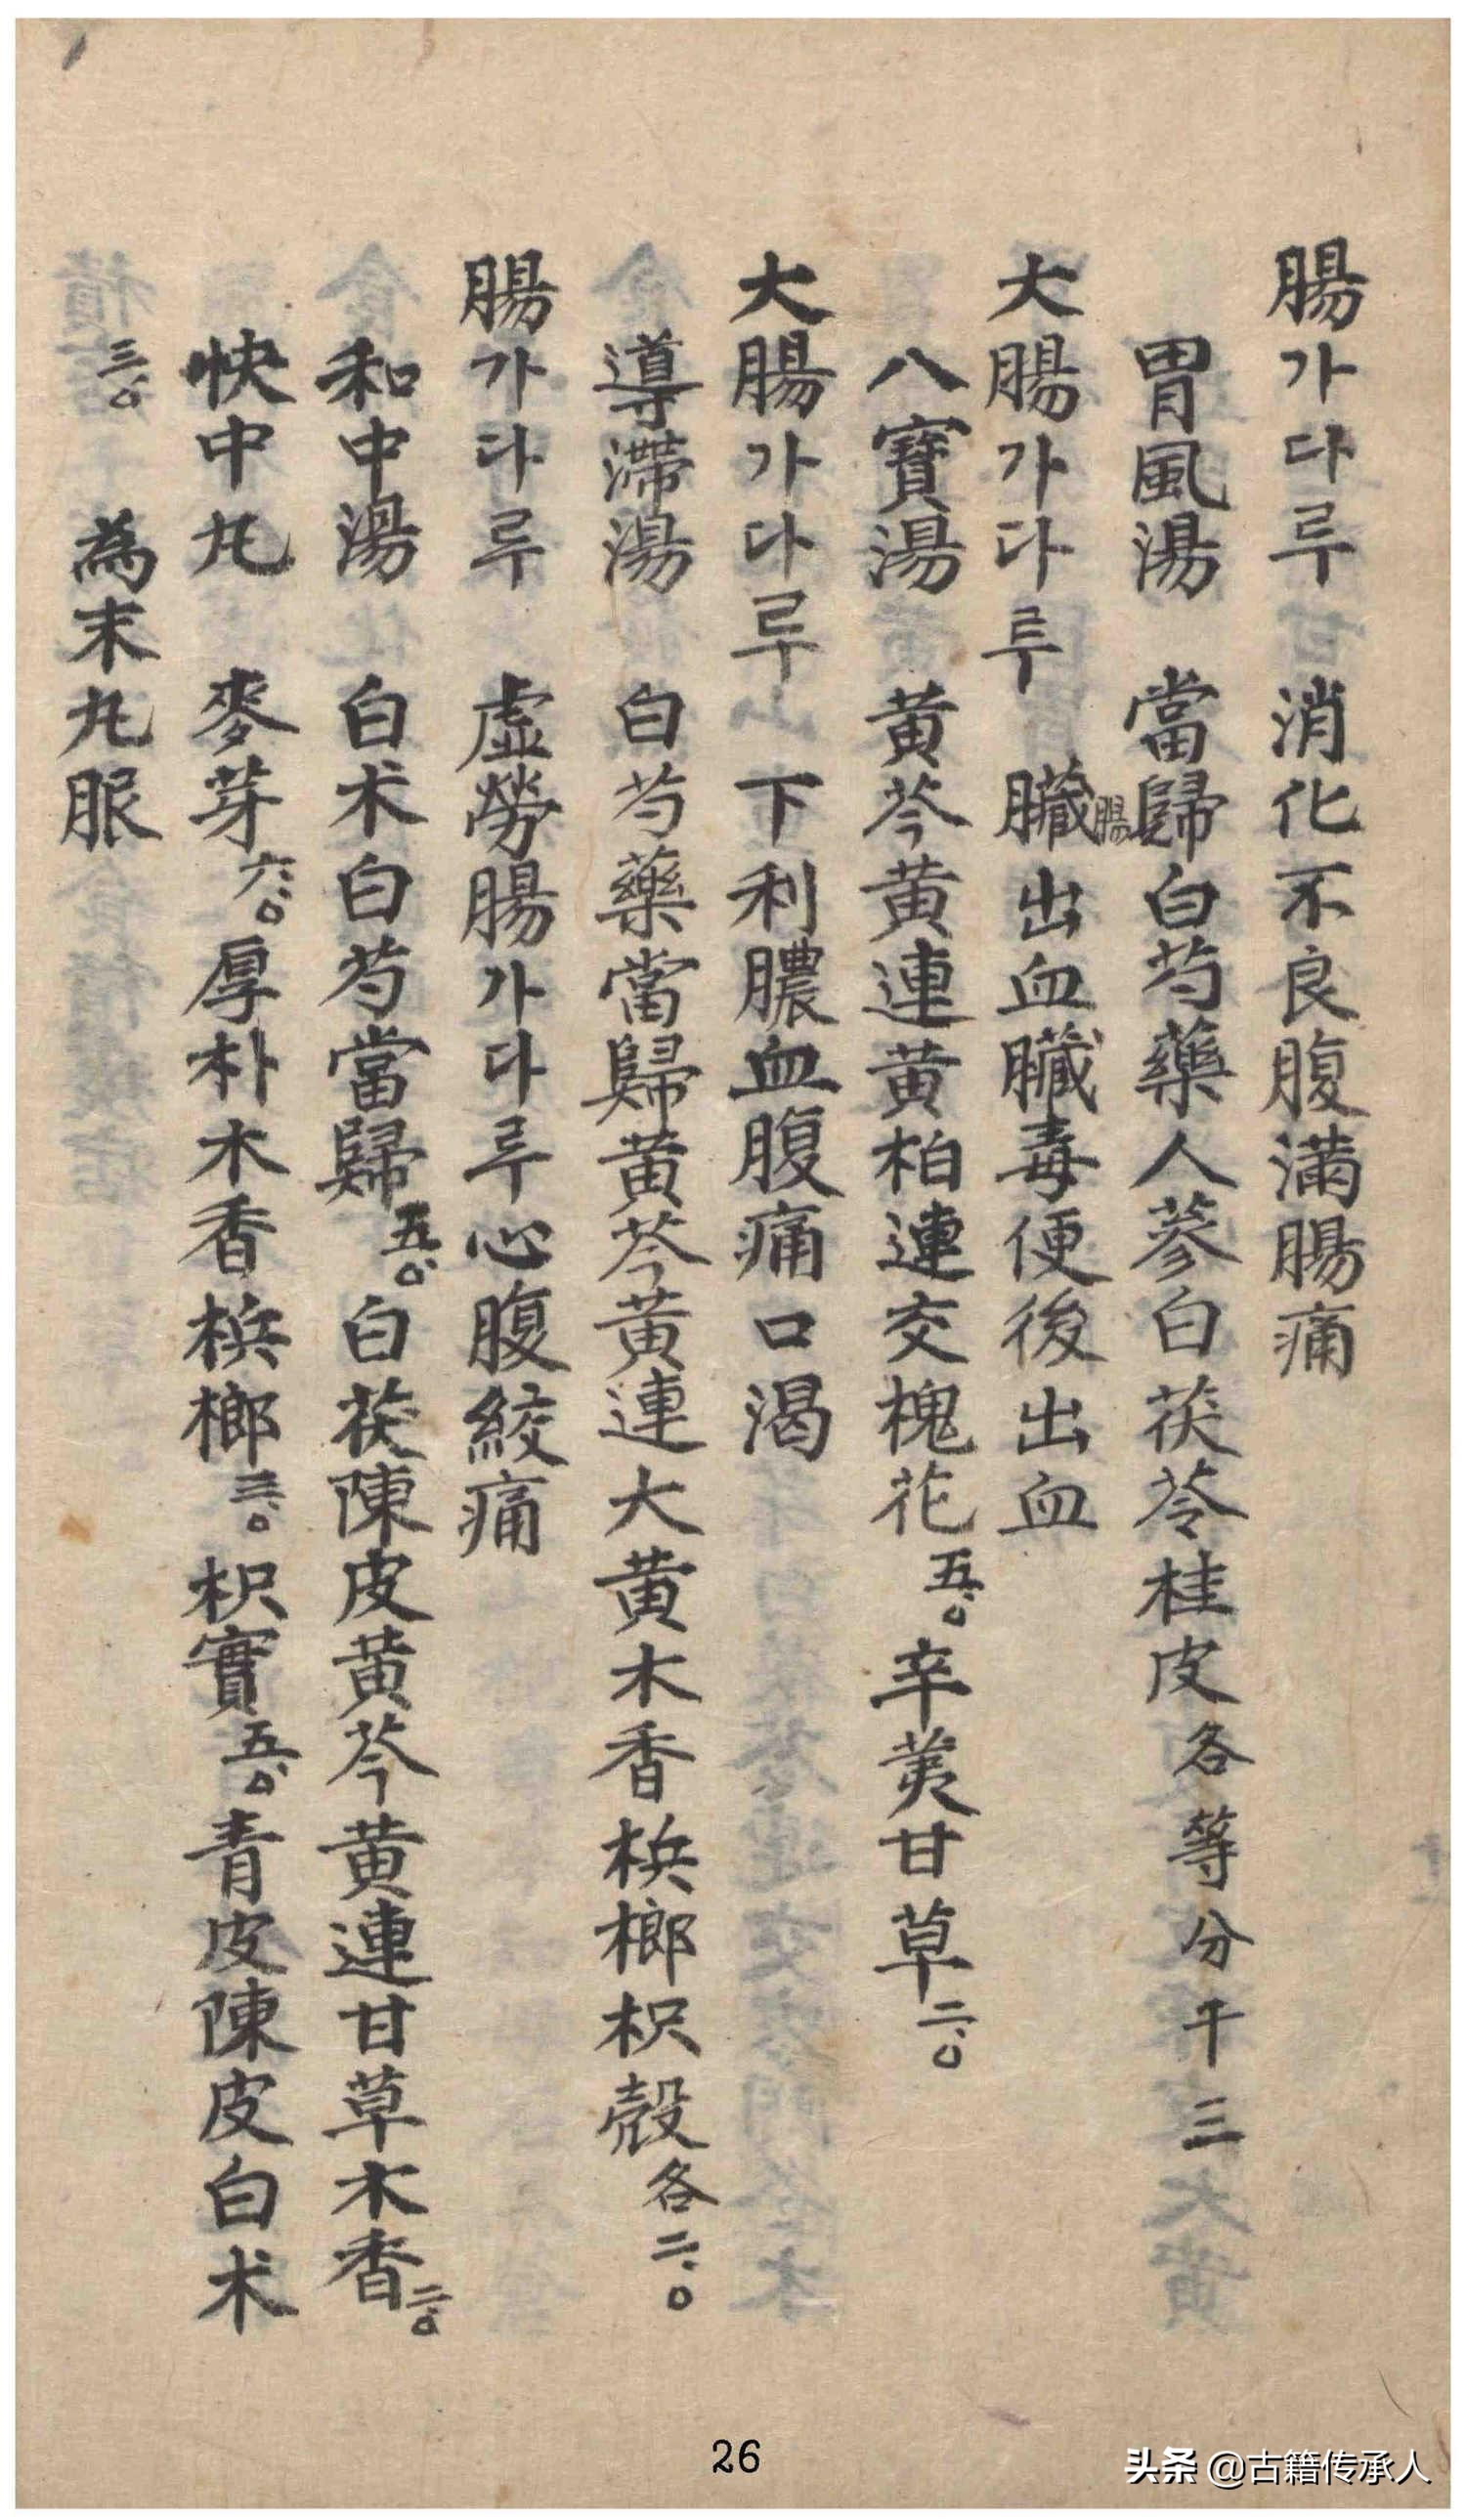 腸가다루 消化不良腹満腸痛
胃風湯 當歸白芍藥人蔘白茯苓桂皮各等分干三
大腸가다루 臟腸出血臟毒便後出血
八寶湯 黄芩黄連黄柏連交槐花五.0辛荑甘草二.0
大腸가다루 下利膿血腹痛口渴
導滯湯 白芍藥當歸黄芩黄連大黄木香梹榔枳殼各二.0
腸가다루 虛勞腸가다루心腹絞痛
和中湯 白朮白芍當歸五.0白茯陳皮黄芩黄連甘草木香二.0
快中丸 麥芽六.0厚朴木香梹榔三.0枳實五.0青皮陳皮白朮
三.0 為末丸服
26
头条 @古籍传承人